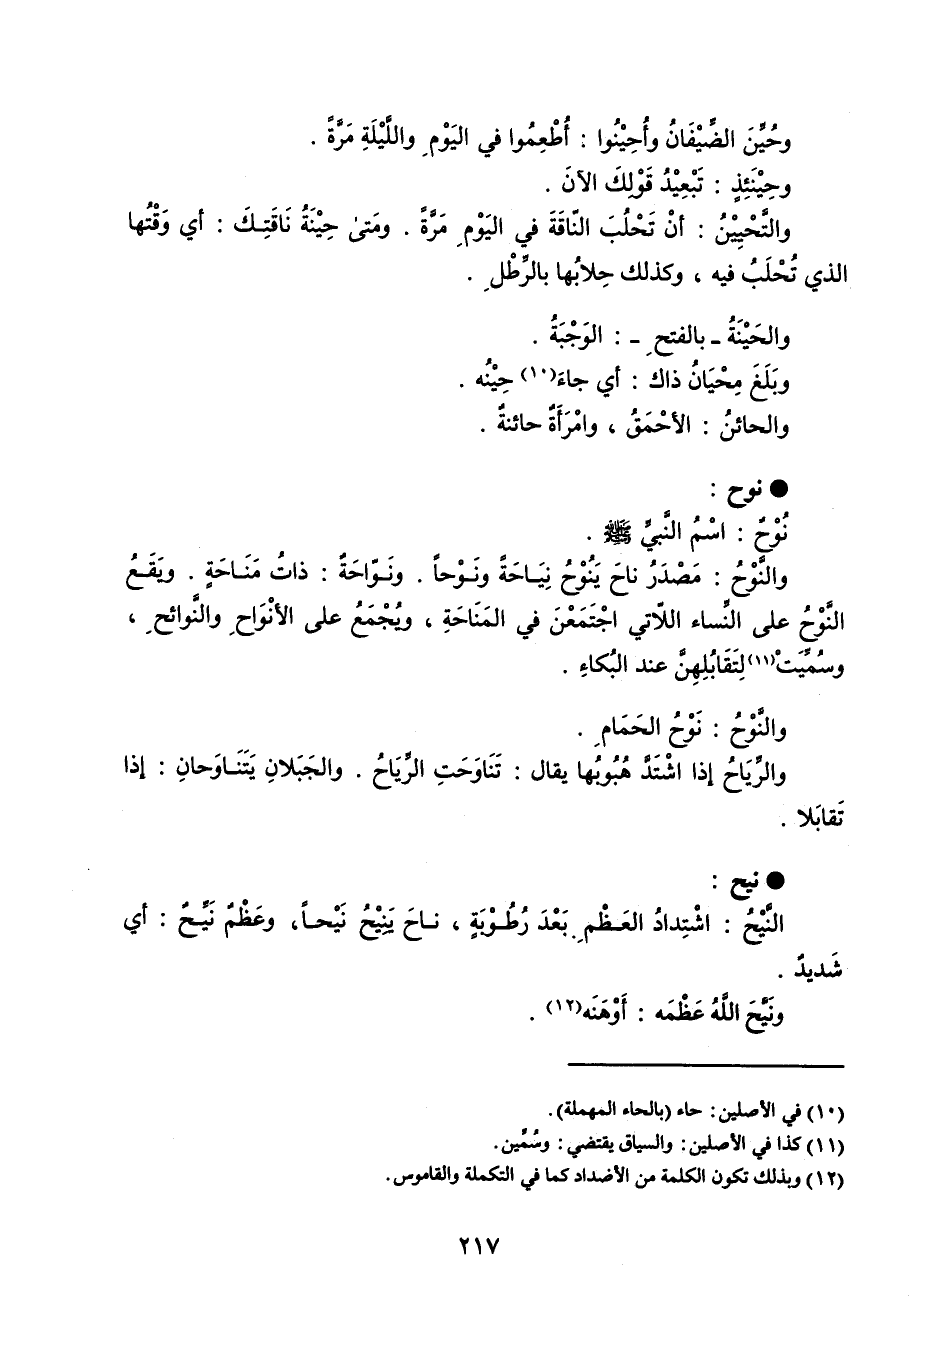 وحُيِّنَ الضِّيْفَانُ وأُحِيْنُوا : أُطْعِمُوا في اليَوْمِ واللَّيْلَةِ مَرَّةً .
وحِيْنَئِذٍ : تَبْعِيْدُ قَوْلِكَ الآنَ .
والتَّحْيِيْنُ : أنْ تَحْلُبَ النّاقَةَ في اليَوْمِ مَرَّةً . ومَتىٰ حِيْنَةُ نَاقَتِكَ : أي وَقْتُها
الذي تُحْلَبُ فيه ، وكذلك حِلابُها بالرِّطْلِ .
والحَيْنَةُ ـ بالفتحِ ـ : الوَجْبَةُ .
وبَلَغَ مِحْيَانُ ذاك : أي جاءَ(١٠) حِيْنُه .
والحائنُ : الأحْمَقُ ، وامْرَأَةٌ حائنةٌ .
● نوح :
نُوْحٌ : اسْمُ النَّبيِّ ﷺ .
والنَّوْحُ : مَصْدَرُ ناحَ يَنُوْحُ نِيَاحَةً ونَوْحاً . ونَوّاحَةٌ : ذاتُ مَنَاحَةٍ . ويَقَعُ
النَّوْحُ على النِّساء اللاّتي اجْتَمَعْنَ في المَنَاحَةِ ، ويُجْمَعُ على الأنْوَاحِ والنَّوائحِ ،
وسُمِّيَتْ(١١) لِتَقَابُلِهِنَّ عند البُكاءِ .
والنَّوْحُ : نَوْحُ الحَمَامِ .
والرِّيَاحُ إذا اشْتَدَّ هُبُوبُها يقال : تَنَاوَحَتِ الرِّيَاحُ . والجَبَلانِ يَتَنَاوَحانِ : إذا
تَقابَلا .
● نيح :
النَّيْحُ : اشْتِدادُ العَظْمِ بَعْدَ رُطُوْبَةٍ ، ناحَ يَنِيْحُ نَيْحاً، وعَظْمٌ نَيِّحٌ : أي
شَديدٌ .
ونَيَّحَ اللَّهُ عَظْمَه : أَوْهَنَه(١٢) .
(١٠) في الأصلين: حاء (بالحاء المهملة).
(١١) كذا في الأصلين: والسياق يقتضي: وسُمِّين.
(١٢) وبذلك تكون الكلمة من الأضداد كما في التكملة والقاموس.
٢١٧